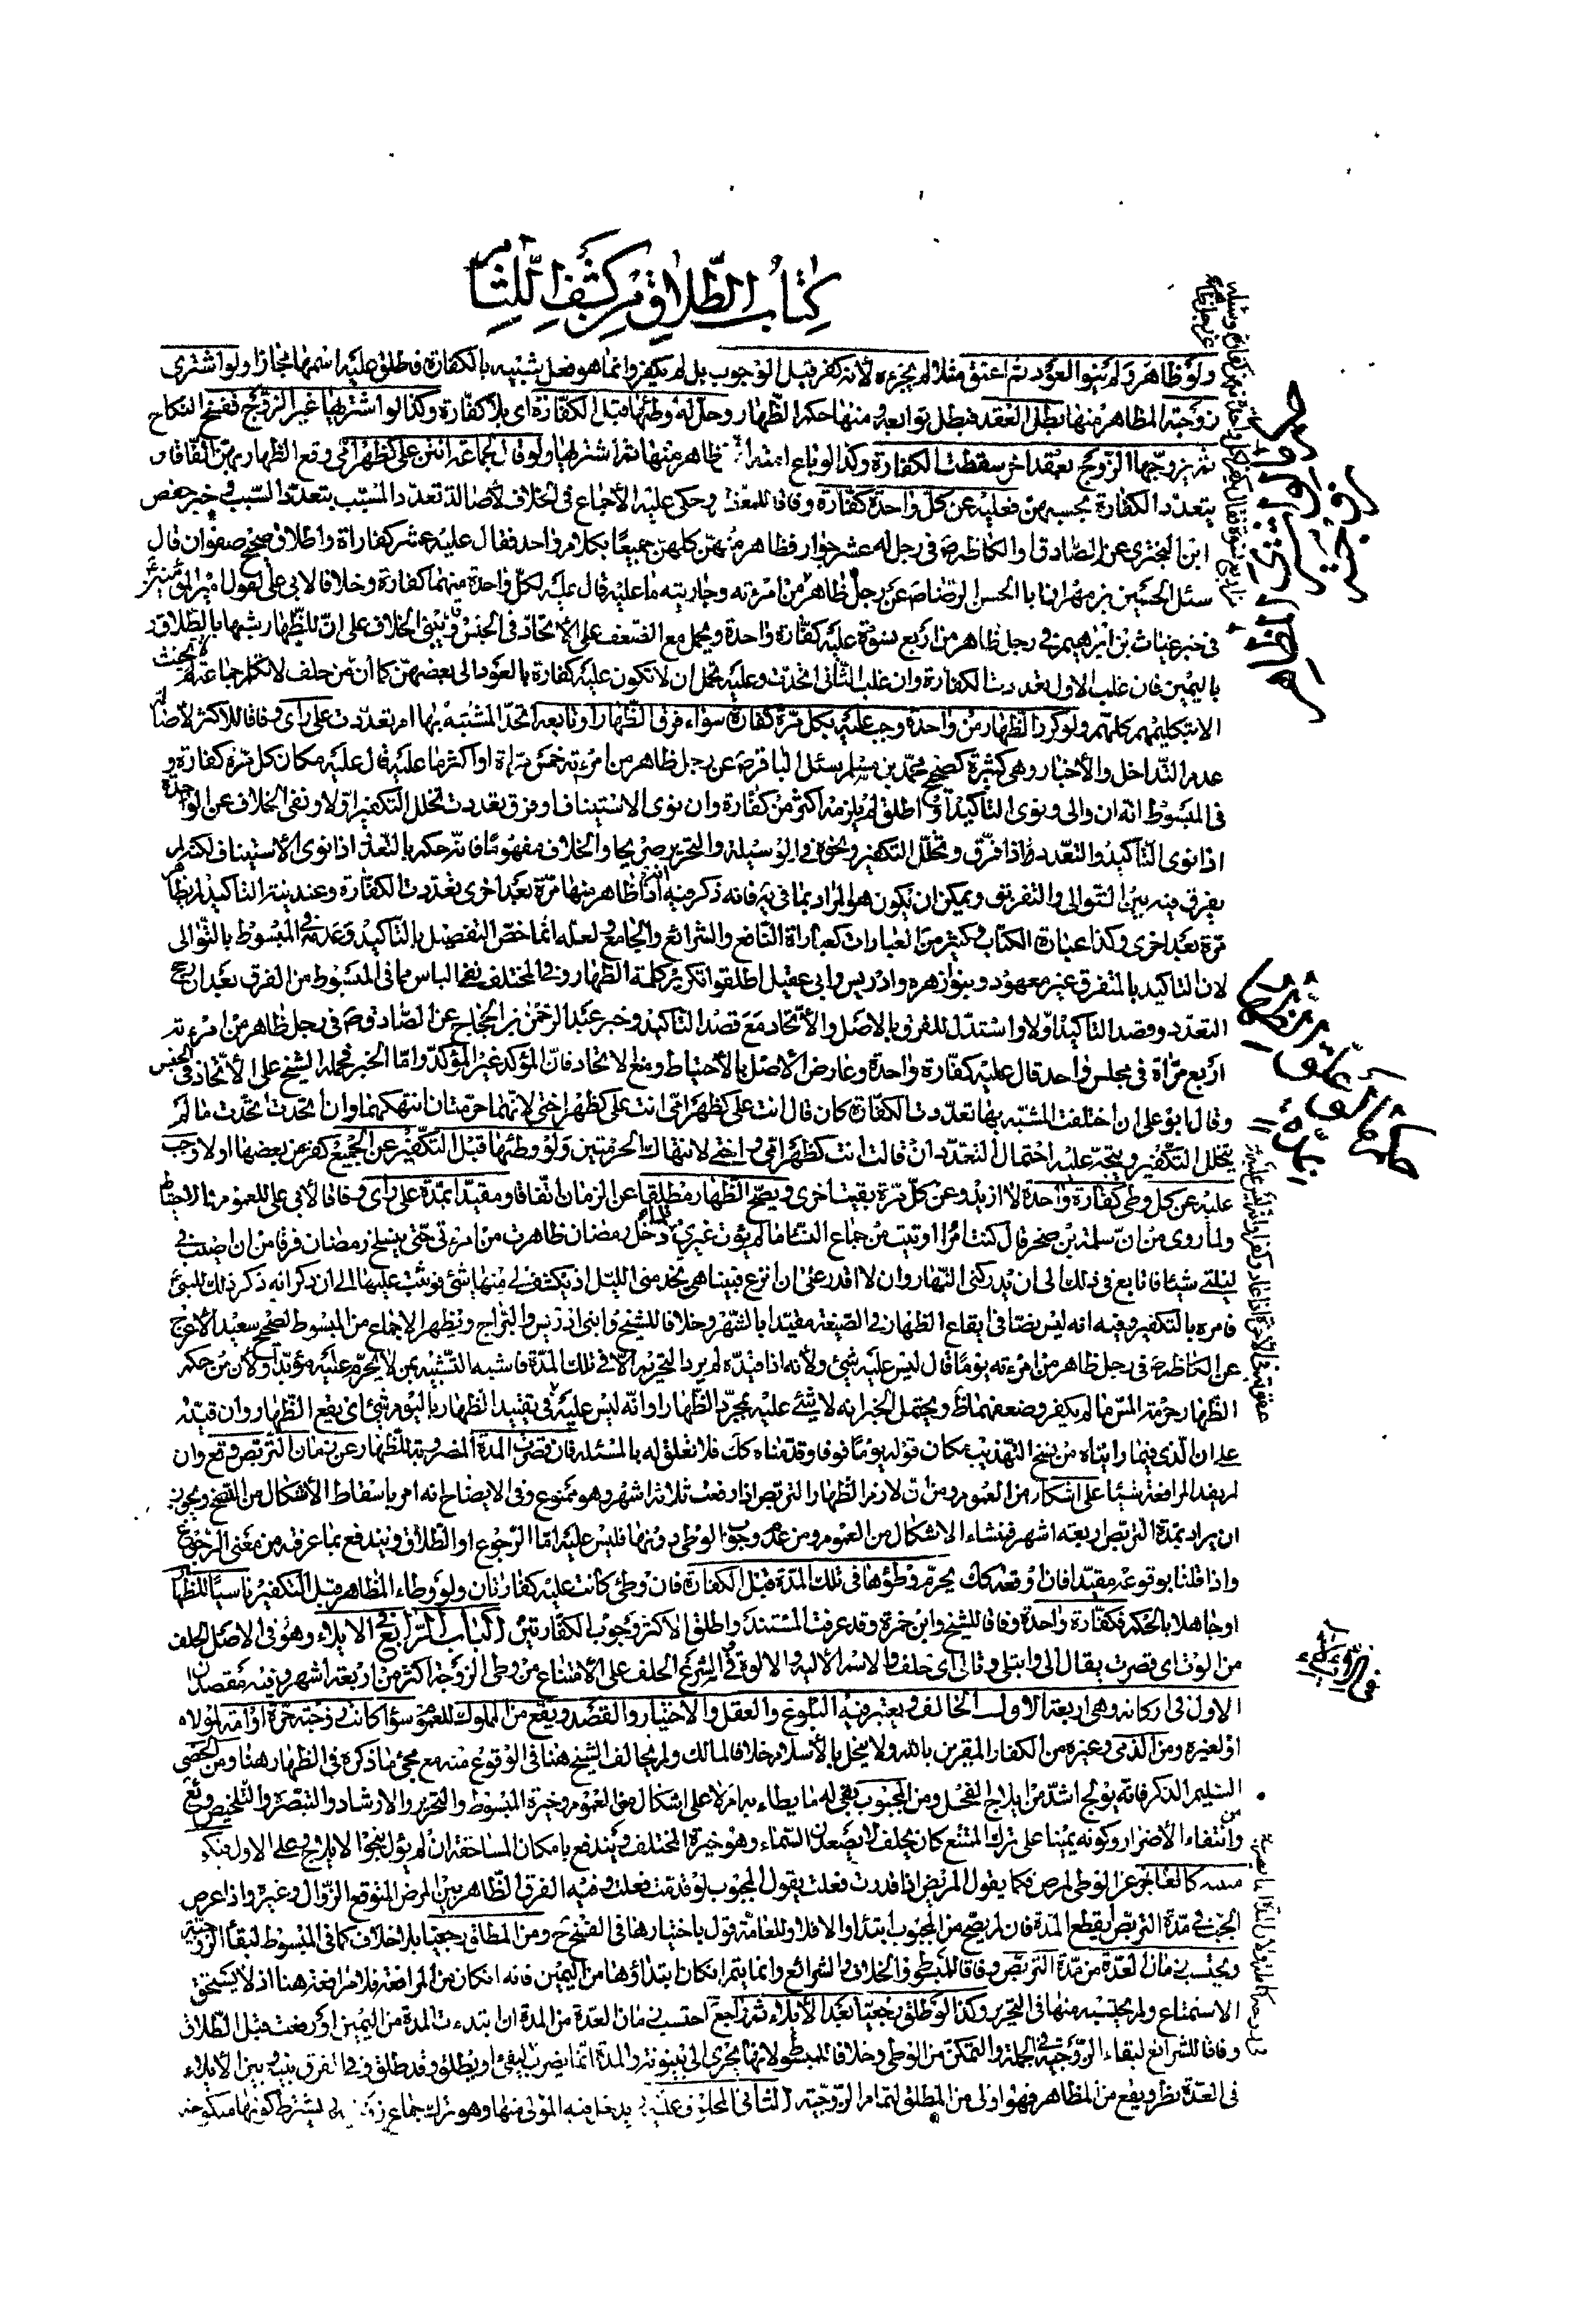 كتاب الطلاق من كشف اللثام
ولو ظاهر ولم ينو العود ثم اعتق مثلا لم يجزءه لأنه كفر قبل الوجوب بل لم يكفر وانما هو فعل شبيه بالكفارة فطلق عليه اسمها مجازا ولو اشترى
زوجته المظاهر منها بطل العقد فبطل توابعه ومنها حكم الظهار وحل له وطئها قبل الكفارة اى بلا كفارة وكذا لو اشتريها غير الزوج ففسخ النكاح
ثم تزوجها الزوج بعقد اخر سقطت الكفارة وكذا لو باع امته ظاهر منها ثم اشتريها ولو قال لجماعة انتن على كظهر امى وقع الظهار بهن اتفاقا و
يتعدد الكفارة بحسبهن فعليه عن كل واحدة كفارة وفاقا للمعظم وحكى عليه الأجماع فى الخلاف لأصالة تعدد المسبب بتعدد السبب وفى خبر حفص
ابن البخترى عن الصادق والكاظم ع فى رجل له عشر جوار فظاهر منهن كلهن جميعا بكلام واحد فقال عليه عشر كفارات واطلاق صحيح صفوان قال
سئل الحسين بن مهران ابا الحسن الرضا ع عن رجل ظاهر من امرءته وجاريته ما عليه قال عليه لكل واحدة منهما كفارة وخلافا لابى على لقول امير المؤمنين
فى خبر غياث بن ابرهيم فى رجل ظاهر من اربع نسوة عليه كفارة واحدة ويحمل مع الضعف على الأتحاد فى الجنس وقد يبنى الخلاف على ان للظهار شبها بالطلاق و
باليمين فان غلب الاول تعددت الكفارة وان غلب الثانى اتحدت وعليه يحتمل ان لا تكون عليه كفارة بالعود الى بعضهن كما ان من حلف لا تكلم جماعة لم يحنث
الا بتكليمهم كلهم ولو كرر الظهار من واحدة وجب عليه بكل مرة كفارة سواء فرق الظهار او تابعه اتحد المشبه بها ام تعددت على راى وفاقا للأكثر لأصالة
عدم التداخل والأخبار وهى كثيرة كصحيح محمد بن مسلم سئل الباقر ع عن رجل ظاهر من امرءته خمس مرات او اكثر ما عليه قال عليه مكان كل مرة كفارة و
فى المبسوط انه ان والى ونوى التاكيد او اطلق لم يلزمه اكثر من كفارة وان نوى الاستيناف او فرق تعددت تخلل التكفير او لا ونفى الخلاف عن الواحدة
اذا نوى التاكيد والتعدد اذا فرق وتخلل التكفير ونحوه فى الوسيلة والتحرير صريحا والخلاف مفهوما فانه حكم بالتعدد اذا نوى الاستيناف لكنه لم
يفرق فيه بين التوالى والتفريق ويمكن ان يكون هو المراد بما فى ية فانه ذكر فيه انه اذا ظاهر منها مرة بعد اخرى تعددت الكفارة وعند نيته التاكيد لم يظاهر
مرة بعد اخرى وكذا عبارة الكتاب وكثير من العبارات كعبارات النافع والشرائع والجامع ولعله انما خص التفصيل بالتاكيد وعدمه فى المبسوط بالتوالى
لان التاكيد بالمتفرق غير معهود وبنو زهره وادريس وابى عقيل اطلقوا تكرير كلمة الظهار وفى المختلف نفى الباس عما فى المبسوط من الفرق بعد ان رجح
التعدد وقصد التاكيد او لا واستدل للفرق بالاصل والأتحاد مع قصد التاكيد وخبر عبد الرحمن بن الحجاج عن الصادق ع فى رجل ظاهر من امرءته
اربع مرات فى مجلس واحد قال عليه كفارة واحدة وعارض الأصل بالأحتياط ومنع الاتحاد فان المؤكد غير المؤكد واما الخبر فحمله الشيخ على الأتحاد فى الجنس
وقال ابو على ان اختلفت المشبه بها تعددت الكفارة كان قال انت على كظهر امى انت على كظهر اختى لانهما حرمتان انتهكهما وان اتحدت اتحدت ما لم
يتخلل التكفير ويتجه عليه احتمال التعدد ان قالت انت كظهر امى و اختى لانتهاك الحرمتين ولو وطئها قبل التكفير عن الجميع كفر عن بعضها او لا وجب
عليه عن كل وطى كفارة واحدة لا ازيد وعن كل مرة بقيت اخرى ويصح الظهار مطلقا عن الزمان اتفاقا ومقيدا بمدة على راى وفاقا لأبى على للعموم والاحتياط
ولما روى من ان سلمة بن صخر قال كنت امرا اوتيت من جماع النساء ما لم يؤت غيرى فلما دخل رمضان ظاهرت من امرءتى حتى ينسلخ رمضان فرقا من ان اصيب فى
ليلتى شيئا فاتابع فى ذلك الى ان يدركنى النهار وان لا اقدر على ان انزع فبينا هى تخدمنى الليل اذ تكشف لى منها شئ فوثبت عليها الى ان ذكر انه ذكر ذلك للنبى
فامره بالتكفير وفيه انه ليس نصا فى ايقاع الظهار فى الصيغة مقيدا بالشهر وخلافا للشيخ وابنى ادريس والبراج ويظهر الإجماع من المبسوط لصحيح سعيد الأعرج
عن الكاظم ع فى رجل ظاهر من امرءته يوما قال ليس عليه شئ ولأنه اذا قيده لم يرد التحريم الا فى تلك المدة فاشبه التشبيه بمن لا يحرم عليه مؤبدا ولأن من حكم
الظهار حرمة المس ما لم يكفر وضعفهما ظ ويحتمل الخبر انه لا شئ عليه بمجرد الظهار او انه ليس عليه فى تقييد الظهار باليوم شئ اى يقع الظهار وان قيده
على ان الذى فيما رايناه من نسخ التهذيب مكان قوله يوما فوفا وقدمناه كك فلا تعلق له بالمسئلة فان قصرت المدة المضروبة للظهار عن زمان التربص وقع وان
لم يفد المرافعة شيئا على اشكال من العموم ومن ان لازم الظهار التربص اذا رفعت ثلاثة اشهر وهو ممنوع وفى الايضاح انه امر باسقاط الأشكال من النسخ ويجوز
ان يراد بمدة التربص اربعة اشهر فمنشاء الاشكال من العموم ومن عدم وجوب الوطى دونها فليس عليه اما الرجوع او الطلاق ويندفع بما عرفته من معنى الرجوع
واذا قلنا بوقوعه مقيدا فان اوقعه كك يحرم وطؤها فى تلك المدة قبل الكفارة فان وطئ كانت عليه كفارتان ولو وطاء المظاهر قبل التكفير ناسيا للظهار
او جاهلا بالحكم فكفارة واحدة وفاقا للشيخ وابن حمزة وقد عرفت المستند واطلق الاكثر وجوب الكفارتين الباب الرابع فى الايلاء وهو فى الاصل الحلف
من الوت اى قصرت يقال الى وايتلى وتالى اى حلف والاسم الألية والالوة وفى الشرع الحلف على الأمتناع من وطى الزوجة اكثر من اربعة اشهر وفيه مقصدان
الاول فى اركانه وهى اربعة الأول الحالف ويعتبر فيه البلوغ والعقل والأختيار والقصد ويقع من المملوك للعموم سواء كانت زوجته حرة او امة لمولاه
او لغيره ومن الذمى وغيره من الكفار المقرين بالله ولا ينحل بالأسلام خلافا لمالك ولم يخالف الشيخ هنا فى الوقوع منه مع مجئ ما ذكره فى الظهار هنا ومن الخصى
السليم الذكر فانه يولج اشد من ايلاج الفحل ومن المجبوب بقى له ما يطاء به ام لا على اشكال من العموم وخيرة المبسوط والتحرير والارشاد والتبصرة والتلخيص وئع
من وانتفاء الأضرار وكونه يمينا على ترك الممتنع كان يحلف لا يصعدن السماء وهو خيرة المختلف ويندفع بامكان المساحقة ان لم يؤل بنحو الا يلاج وعلى الاول
كالعاجز عن الوطى لمرض فكما يقول المريض اذا قدرت فعلت يقول المجبوب لو قدرت فعلت وفيه الفرق الظاهر بين المرض المتوقع الزوال وغيره واذا عرض
الجب فى مدة التربص يقطع المدة فان لم يصح من المجبوب ابتداء والا فلا وللعامة قول باختيارها فى الفسخ ح ومن المطلق رجعيا بلا خلاف كما فى المبسوط لبقاء الزوجية
ويحتسب زمان العدة من مدة التربص وفاقا للمبسوط والخلاف والشرائع وانما يتم ان كان ابتداؤها من اليمين فانه ان كان من المرافعة فلا مرافعة هنا اذ لا يستحق
الاستمتاع ولم يحتسبه منها فى التحرير وكذا لو طلق رجعيا بعد الأيلاء ثم راجع احتسب زمان العدة من المدة ان ابتدءت المدة من اليمين او رفعت قبل الطلاق
وفاقا للشرائع لبقاء الزوجية فى الجملة والتمكن من الوطى وخلافا للمبسوط لانها يجرى الى بينونة والمدة انما يضرب ليفئ او يطلق وقد طلق وفى الفرق بينه وبين الأيلاء
فى العدة نظر ويقع من المظاهر فهو اولى من المطلق لتمام الزوجية الثانى المحلوف عليه يدخل فيه المولى منها وهو ترك جماع زوجته يشترط كونها منكوحة
فى الايلاء